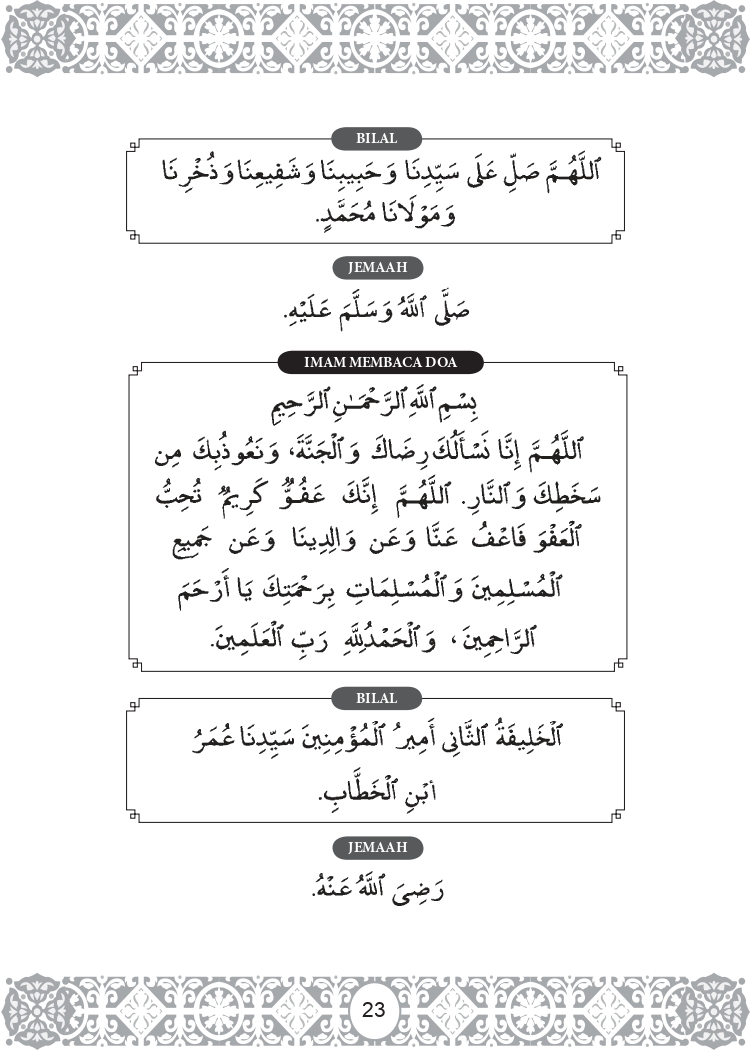 BILAL
ٱللَّهُمَّ صَلِّ عَلَى سَيِّدِنَا وَحَبِيبِنَا وَشَفِيعِنَا وَذُخْرِنَا
وَمَوْلَانَا مُحَمَّدٍ.
JEMAAH
صَلَّى ٱللَّهُ وَسَلَّمَ عَلَيْهِ.
IMAM MEMBACA DOA
بِسْمِ ٱللَّهِ ٱلرَّحْمَـٰنِ ٱلرَّحِيمِ
ٱللَّهُمَّ إِنَّا نَسْأَلُكَ رِضَاكَ وَٱلْجَنَّةَ، وَنَعُوذُبِكَ مِن
سَخَطِكَ وَٱلنَّارِ. ٱللَّهُمَّ إِنَّكَ عَفُوٌّ كَرِيمٌ تُحِبُّ
ٱلْعَفْوَ فَاعْفُ عَنَّا وَعَن وَالِدِينَا وَعَن جَمِيعِ
ٱلْمُسْلِمِينَ وَٱلْمُسْلِمَاتِ بِرَحْمَتِكَ يَا أَرْحَمَ
ٱلرَّاحِمِينَ، وَٱلْحَمْدُلِلَّهِ رَبِّ ٱلْعَلَمِينَ.
BILAL
ٱلْخَلِيفَةُ ٱلثَّانِى أَمِيرُ ٱلْمُؤْمِنِينَ سَيِّدِنَا عُمَرُ
ٱبْنِ ٱلْخَطَّابِ.
JEMAAH
رَضِىَ ٱللَّهُ عَنْهُ.
23